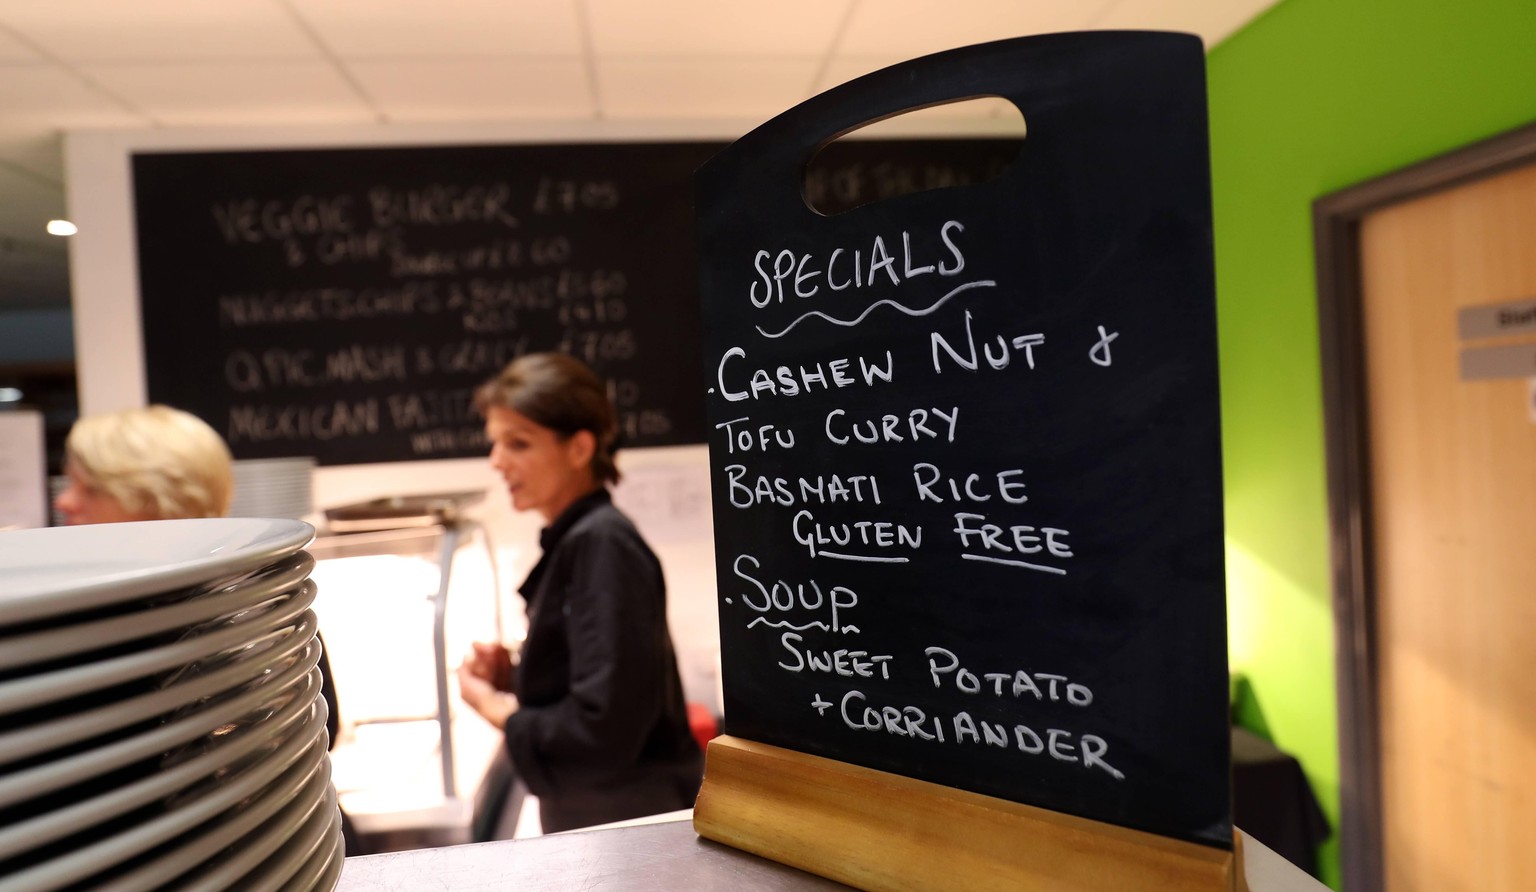 VEGGIE BURGER £7.05
& CHIPS
NUGGETS CHIPS & BEANS
MASH &
MEXICAN FAJITA
SPECIALS
. CASHEW NUT &
TOFU CURRY
BASMATI RICE
GLUTEN FREE
. SOUP
SWEET POTATO
+ CORRIANDER